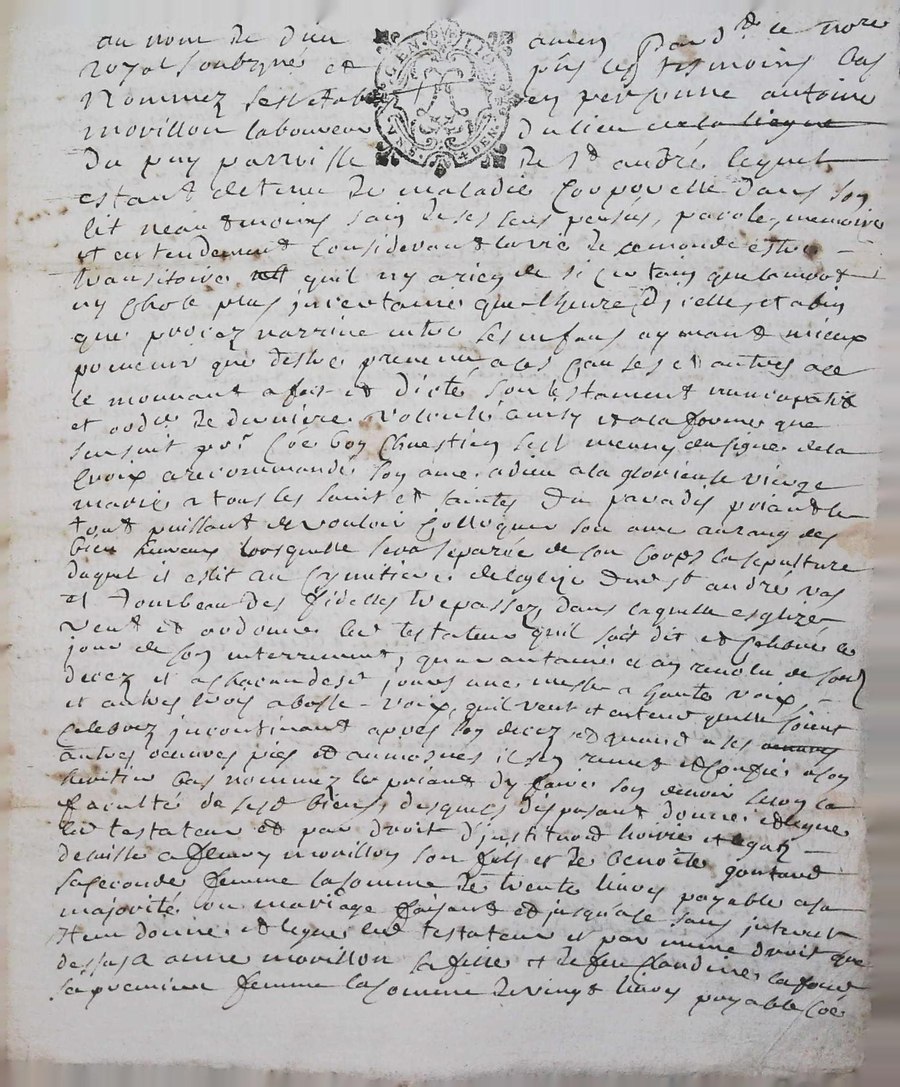 au nom de dieu amen Pard.t le No.re
Royal Soubzné et pñs les tesmoins bas
Nommez sest establ en personne antoine
movillon laboureur du lieu de la liegue
du puy parroisse de S.t andré lequel
estant detenu de maladie Corporelle dans son
lit neantmoins sain de ses sens pensés, parole, memoire
et entendement Considerant la vie de ce monde estre
transitoire quil ny a rien de si certain que la mort
ny chose plus incertaine que lheure dicelle, et afin
que procez narrive entre ses enfans aymant mieux
prevenir que destre prevenu a les causes et autres a ce
le mouvant a fait et dicté son testament nuncupatif
et ord.ce de derniere volonté ainsy et a la forme que
sensuit p.r Coe bon Chrestien sest muny du signe de la
Croix a recommandé son ame a dieu a la glorieuse vierge
marie a tous les saints et saintes du paradis priant le
tout puissant de vouloir Colloquer son ame au rang des
bien heureux lorsquelle sera separée de son Corps la sepulture
duquel il eslit au Cymitiere de leglize dud st andré
et tombeau des fidelles trepassez dans laquelle esglize
veut et ordonne led testateur quil soit dit et celebré le
jour de son enterrement, quarantaine et an revolu de sond
decez et a chacun desd jours une messe a haute voix,
et autres trois a basse voix, quil veut et entend quelles soient
Celebrez incontinant apres son decez et quand a ses oeuvres
autres oeuvres pies et aumosnes il sen remet et confie a son
heritier bas nommez le priant dy faire son devoir selon la
faculté de sesd biens desquels disposant donne et legue
led testateur et par droit dinstitu.on hoire et legat
delaisse a fleury movillon son fils et de benoite gontard
sa seconde femme la somme de trente livres payable a sa
majorité ou mariage faisant et jusqua ce sans interest
Item donne et legue led testateur et par mesme droit que
dessus a anne movillon sa fille et de feu claudine lafond
sa premiere femme la somme de vingt livres payable coe